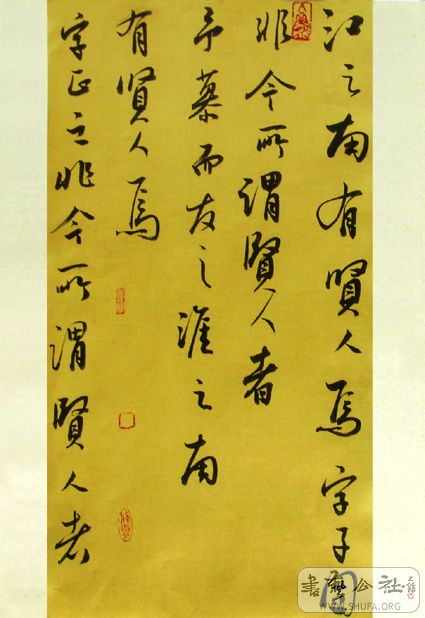 江之南有賢人焉字子固
非今所謂賢人者
予慕而友之淮之南
有賢人焉
字正之非今所謂賢人者
書藝公社
WWW.SHUFA.ORG